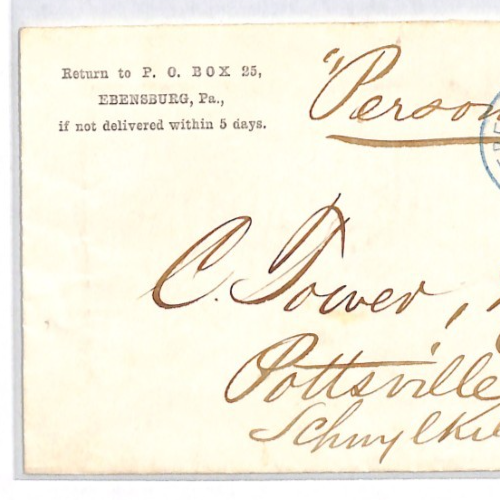 Return to P. O. BOX 25,
EBENSBURG, Pa.,
if not delivered within 5 days.
"Person
C. Tower,
Pottsville
Schuylkil